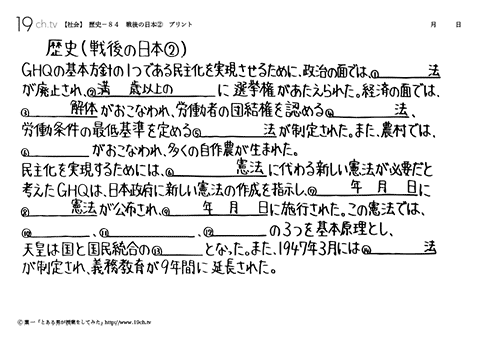 19ch.tv 【社会】 歴史－84 戦後の日本② プリント 月 日
歴史(戦後の日本②)
GHQの基本方針の1つである民主化を実現させるために、政治の面では、①______法
が廃止され、②満 歳以上の______に選挙権があたえられた。経済の面では、
③______解体がおこなわれ、労働者の団結権を認める④______法、
労働条件の最低基準を定める⑤______法が制定された。また、農村では、
⑥______がおこなわれ、多くの自作農が生まれた。
民主化を実現するためには、⑦______憲法に代わる新しい憲法が必要だと
考えたGHQは、日本政府に新しい憲法の作成を指示し、⑧______年 月 日に
⑨______憲法が公布され、⑩______年 月 日に施行された。この憲法では、
⑪______、⑫______、⑬______の3つを基本原理とし、
天皇は国と国民統合の⑭______となった。また、1947年3月には⑮______法
が制定され、義務教育が9年間に延長された。
© 葉一「とある男が授業をしてみた」http://www.19ch.tv